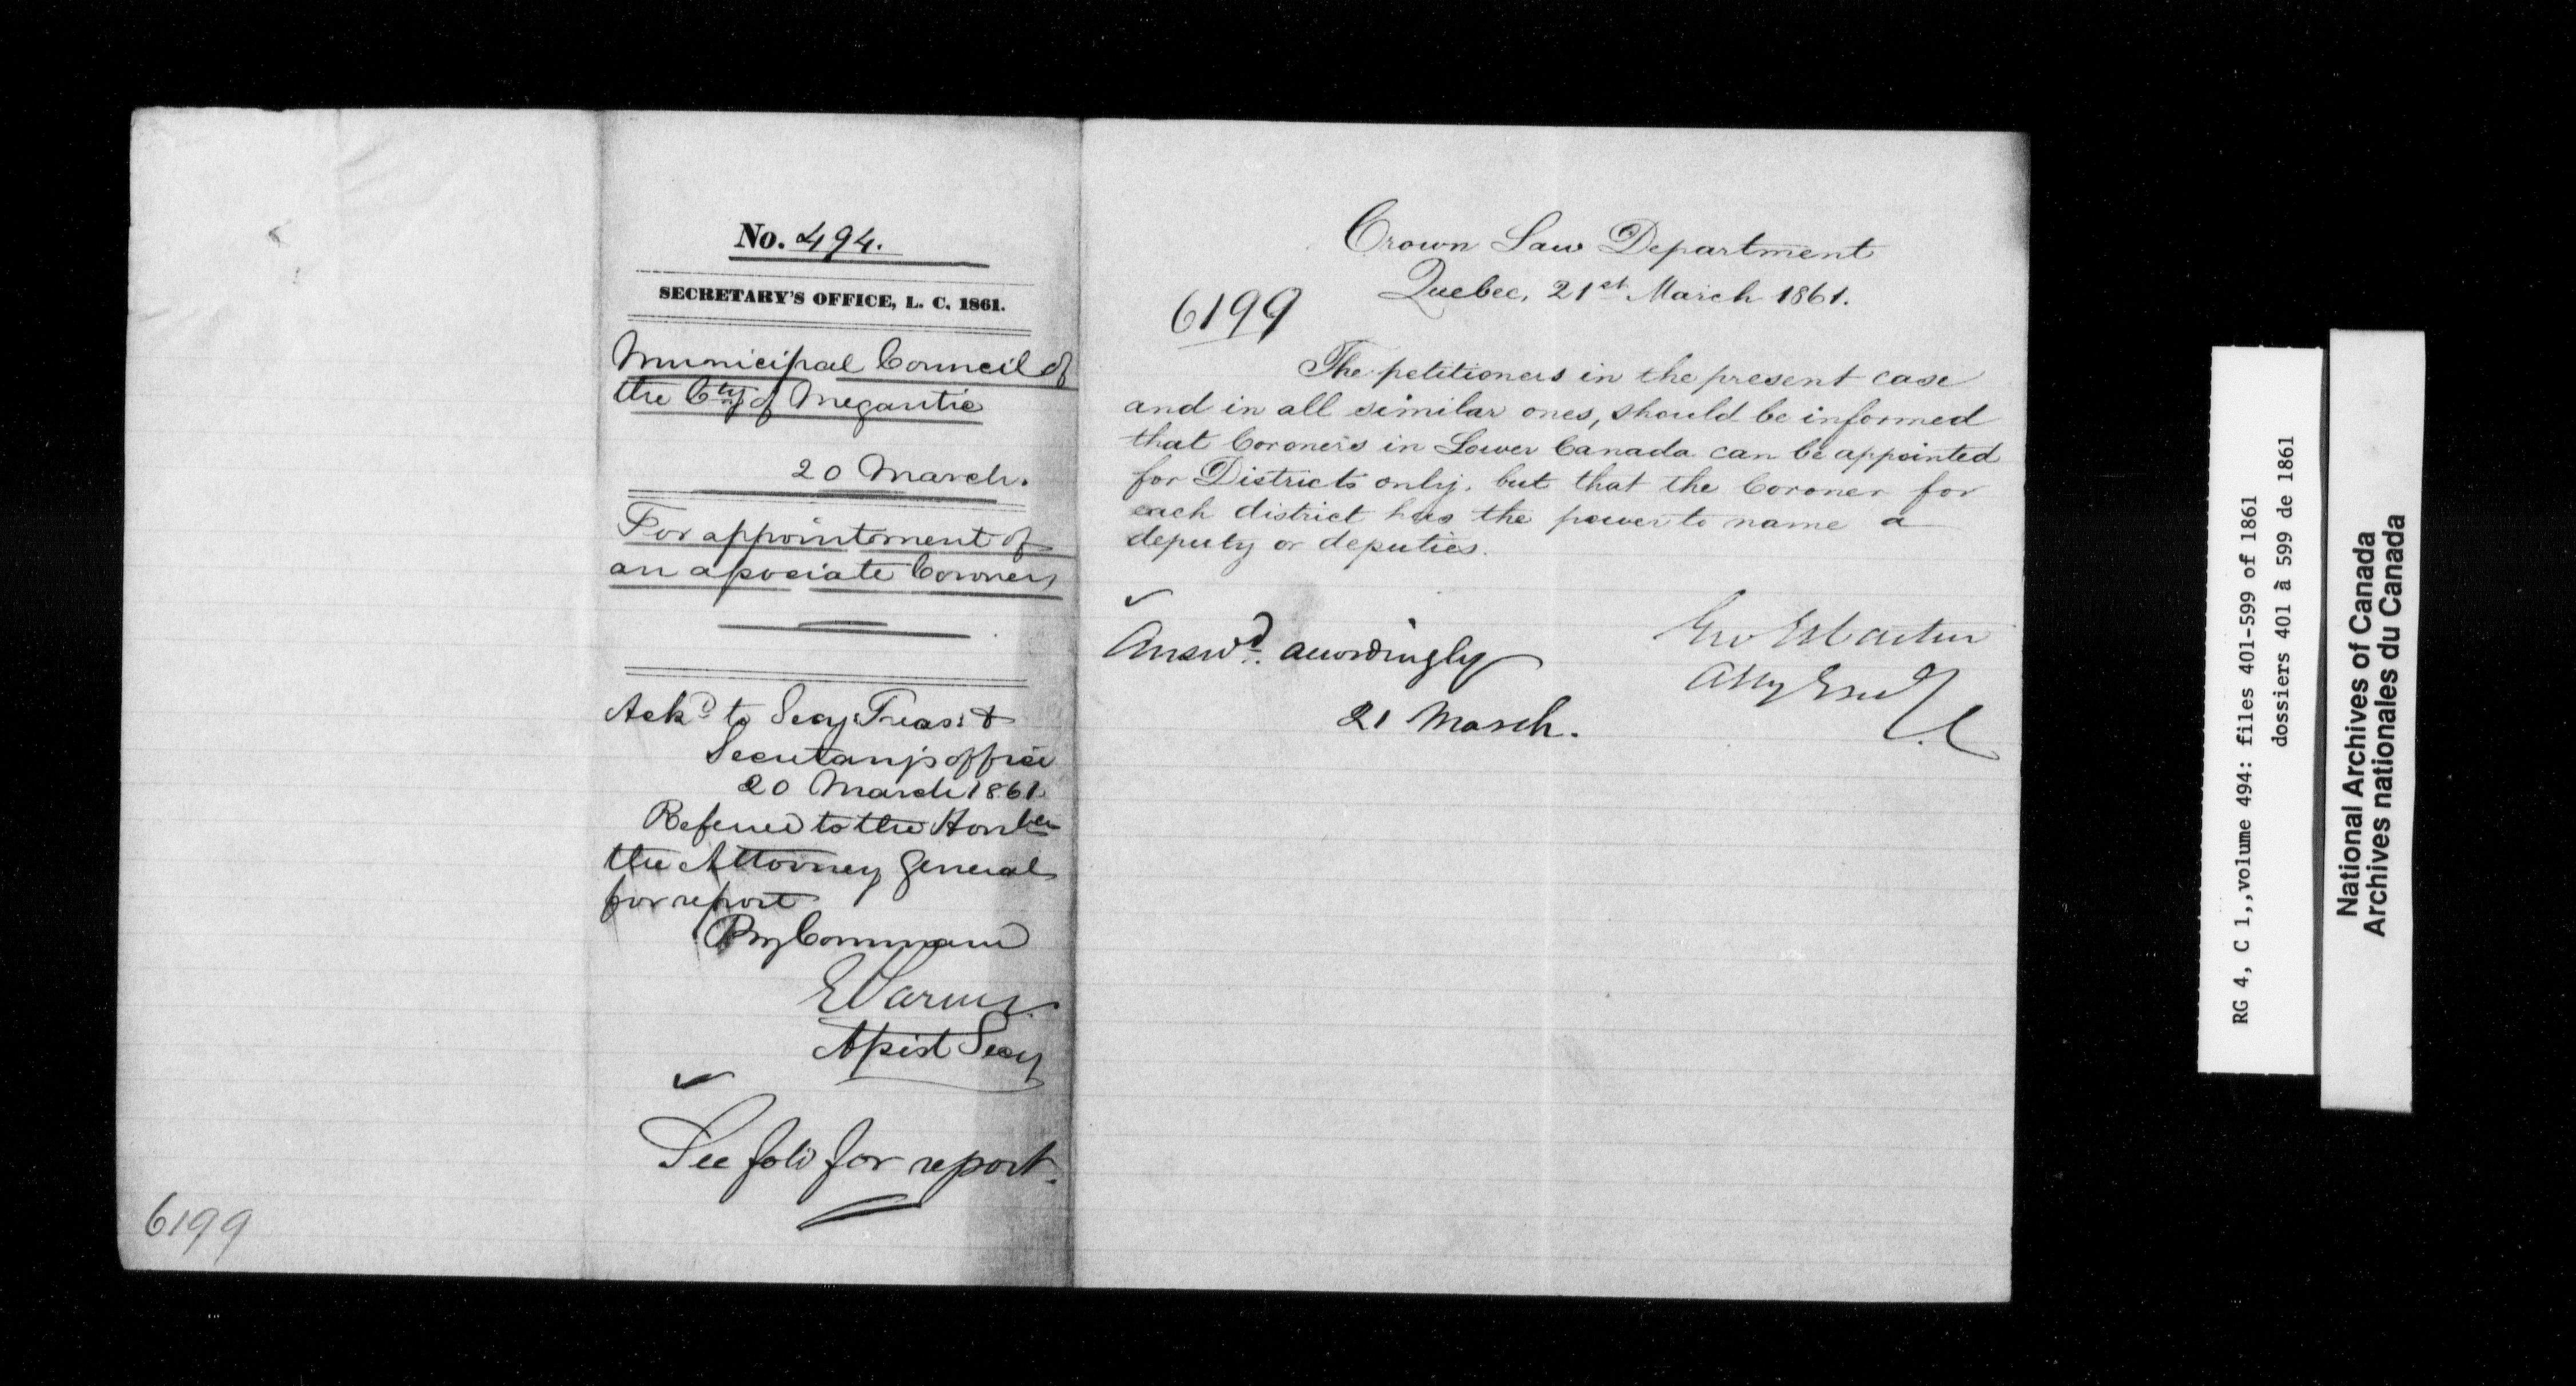 No. 494.
SECRETARY'S OFFICE, L. C. 1861.
Municipal Council of
the Cty of Megantic
20 March.
For appointment of
an associate Coroner,
Ackd to Secy Treas: &
Secretary's office
20 March 1861.
Referred to the Honble
the Attorney General
for report
By Command
E Parent
Assist Secy
See fold for report.
6199
Crown Law Department
Quebec, 21st March 1861.
6199
The petitioners in the present case
and in all similar ones, should be informed
that Coroners in Lower Canada can be appointed
for Districts only, but that the Coroner for
each district has the power to name a
deputy or deputies.
Geo Et Cartier
Atty Genl L.C
Answd. accordingly
21 March.
RG 4, C 1,,volume 494: files 401-599 of 1861
dossiers 401 à 599 de 1861
National Archives of Canada
Archives nationales du Canada